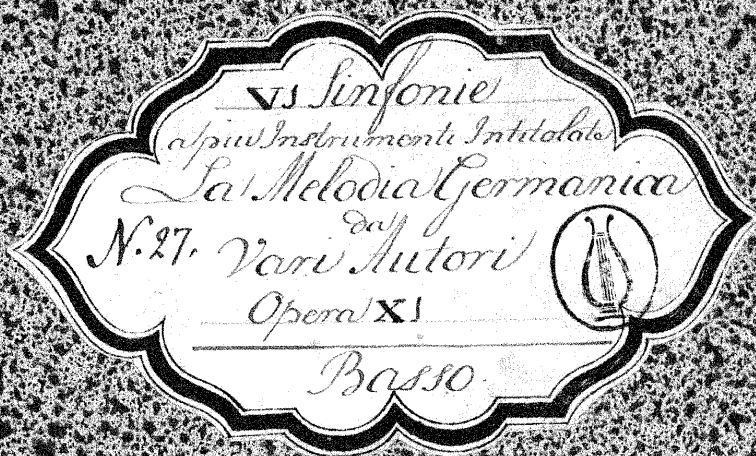 VI Sinfonie
a piu Instrumenti Intitolate
La Melodia Germanica
da
N. 27. Vari Autori
Opera XI
Basso.